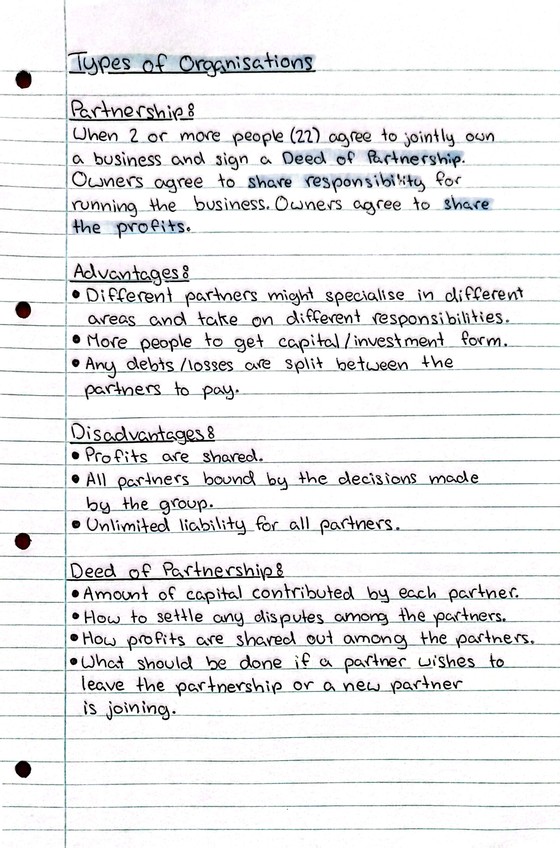 Types of Organisations
Partnership:
When 2 or more people (22) agree to jointly own
a business and sign a Deed of Partnership.
Owners agree to share responsibility for
running the business. Owners agree to share
the profits.
Advantages:
• Different partners might specialise in different
areas and take on different responsibilities.
• More people to get capital/investment form.
• Any debts/losses are split between the
partners to pay.
Disadvantages:
• Profits are shared.
• All partners bound by the decisions made
by the group.
• Unlimited liability for all partners.
Deed of Partnership:
• Amount of capital contributed by each partner.
• How to settle any disputes among the partners.
• How profits are shared out among the partners.
• What should be done if a partner wishes to
leave the partnership or a new partner
is joining.